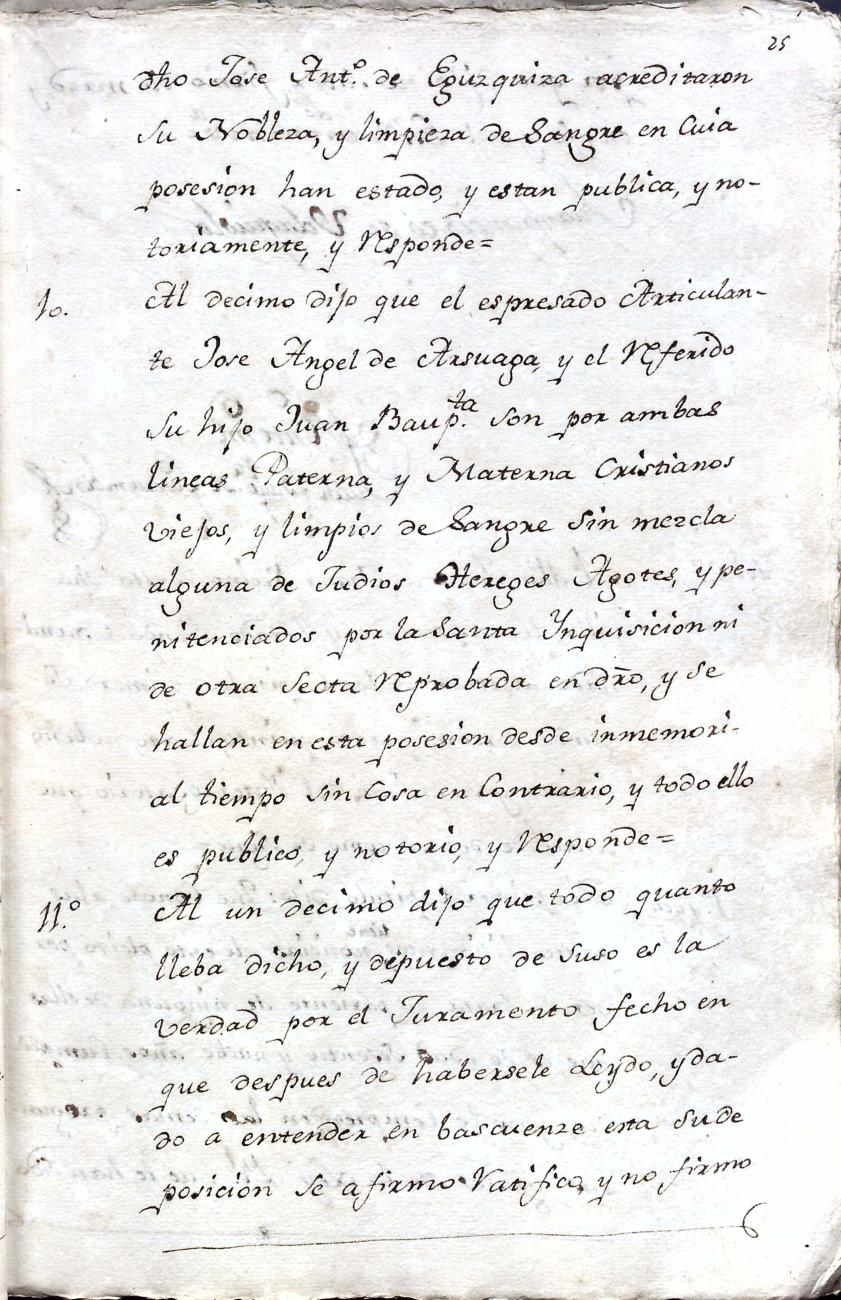 25
dho Jose Ant.º de Eguzquiza acreditaron
su Nobleza, y limpieza de Sangre en Cuia
posesion han estado, y estan publica, y no-
toriamente, y Responde=
10. Al decimo dijo que el espresado Articulan-
te Jose Angel de Arsuaga, y el Referido
su hijo Juan Baup.ta son por ambas
lineas Paterna, y Materna Cristianos
viejos, y limpios de Sangre sin mezcla
alguna de Judios Hereges Agotes, y pe-
nitenciados por la Santa Ynquisicion ni
de otra Secta Reprobada en dro, y se
hallan en esta posesion desde inmemori-
al tiempo sin Cosa en Contrario, y todo ello
es publico, y notorio, y Responde=
11.º Al un decimo dijo que todo quanto
lleba dicho, y depuesto de suso es la
verdad por el Juramento fecho en
que despues de habersele Leydo, y da-
do á entender en bascuenze esta su de
posicion se afirmo Ratifico, y no firmo